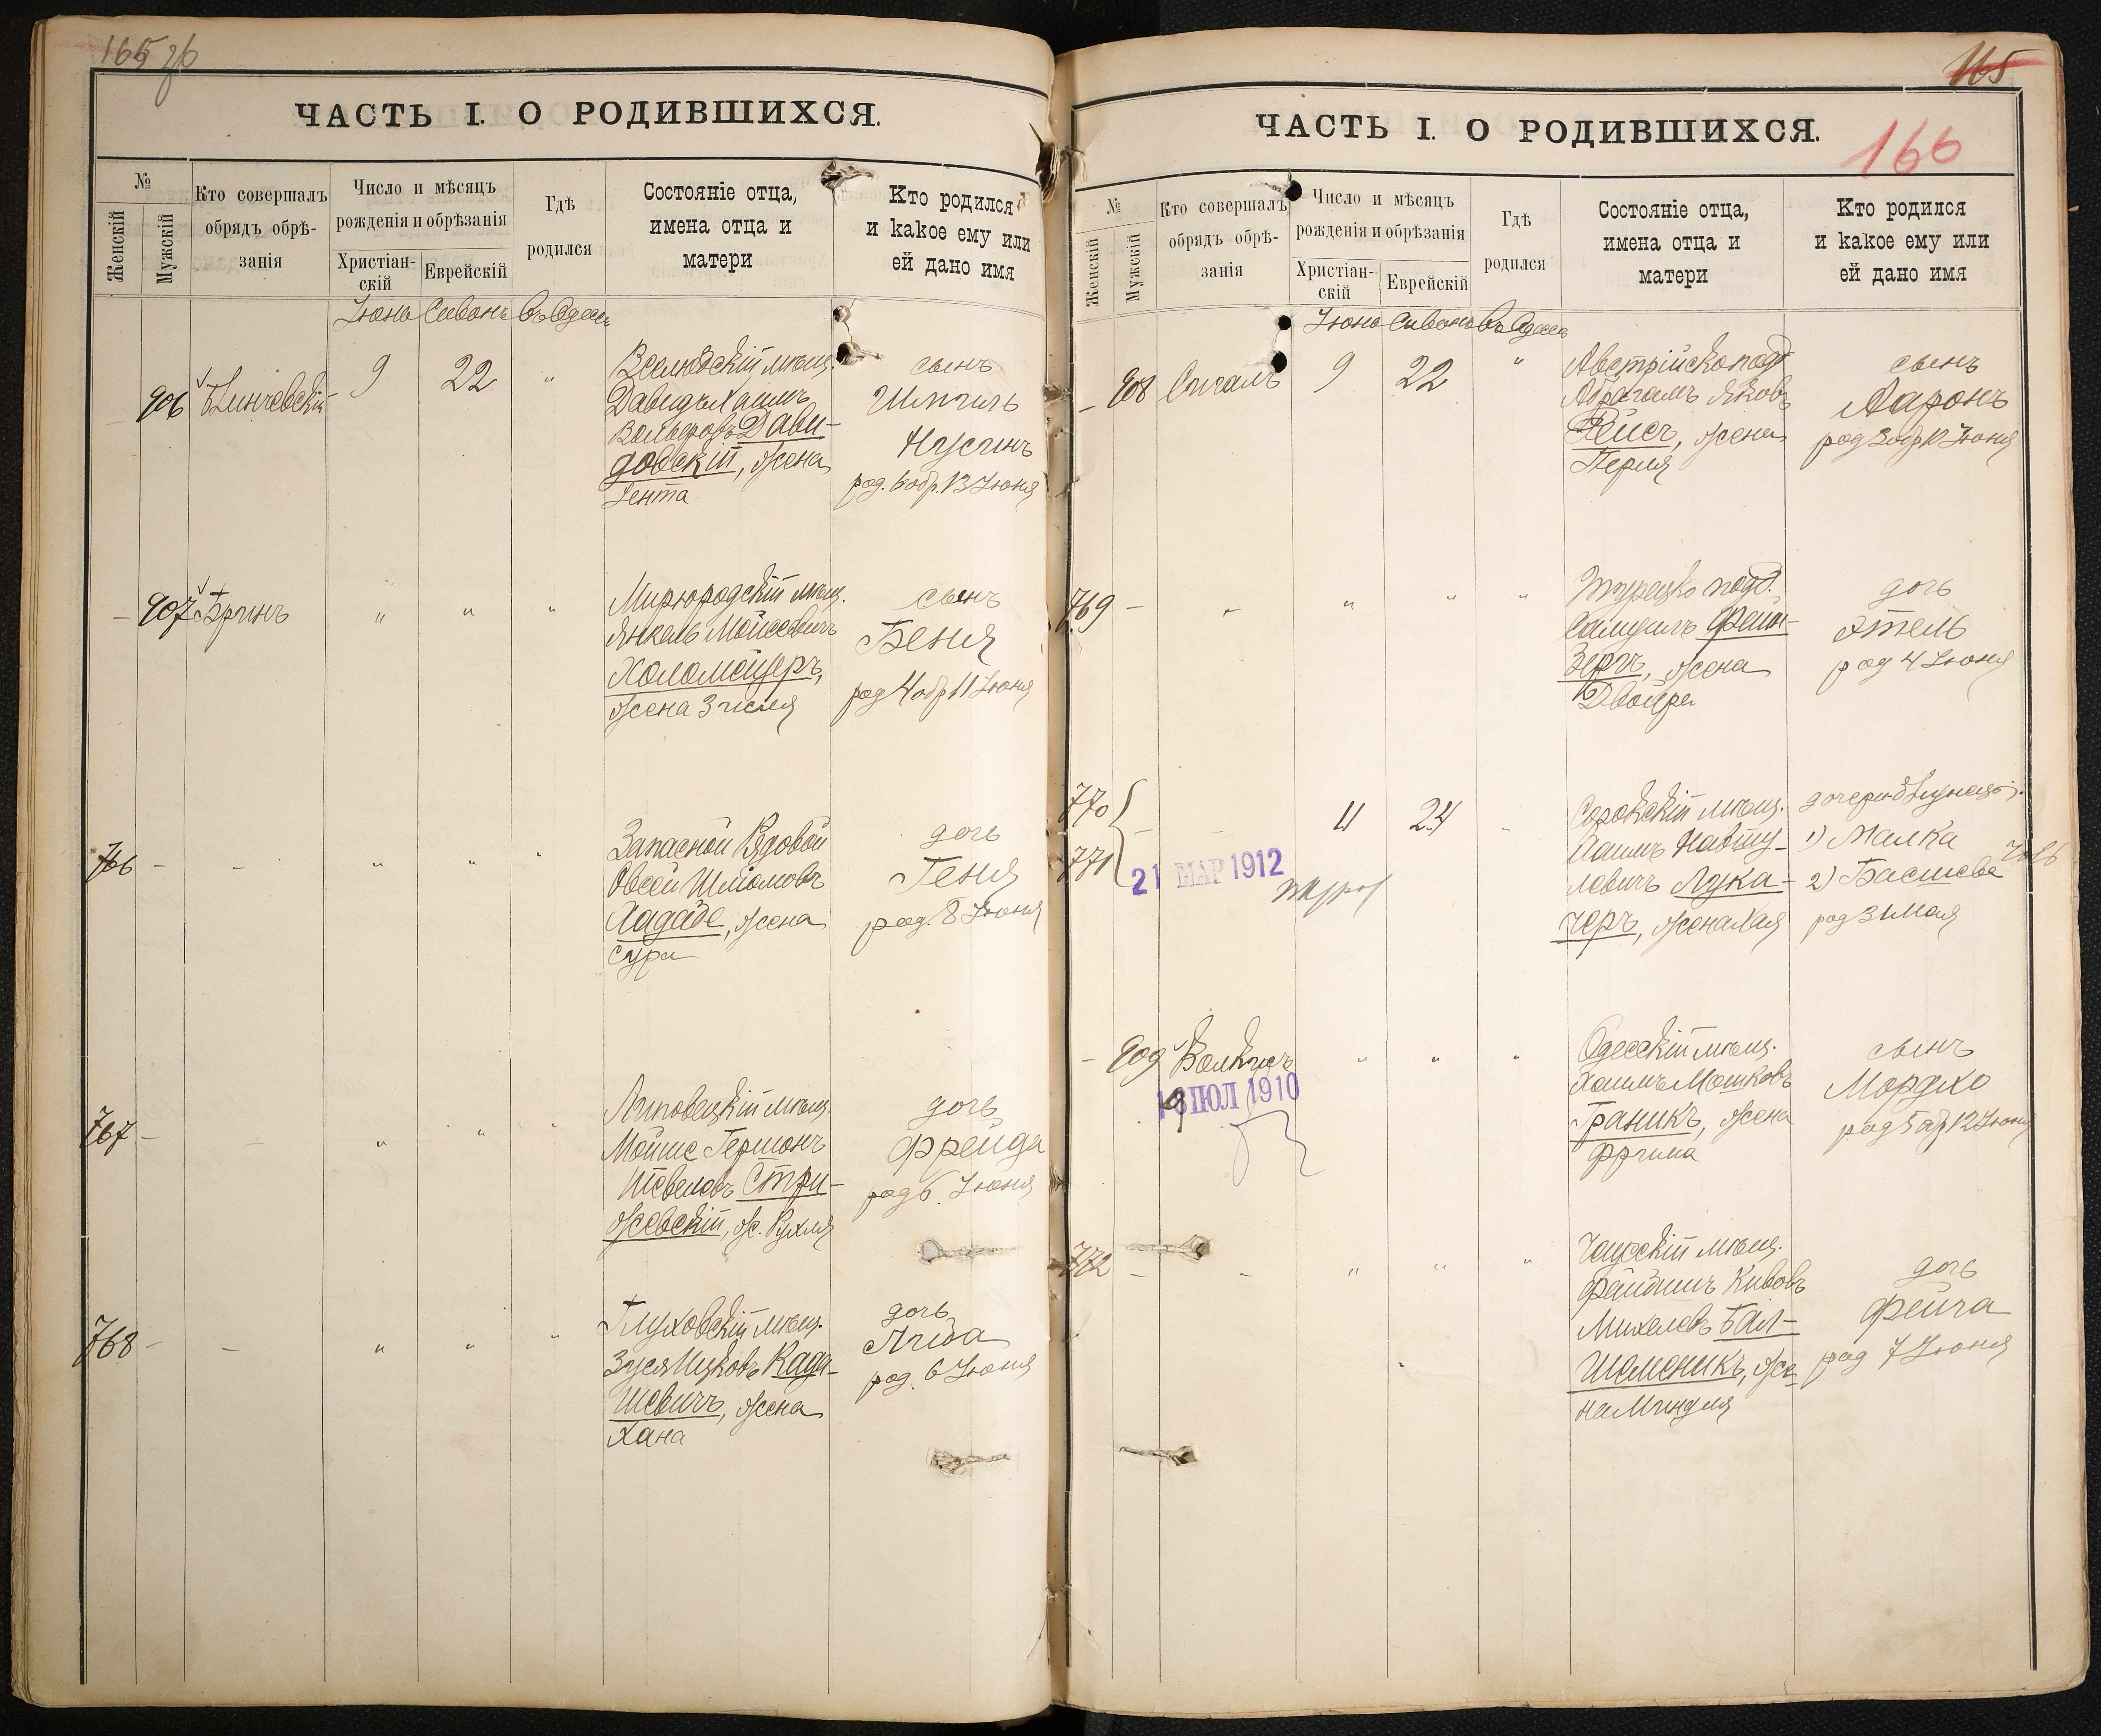 165 об
ЧАСТЬ I. О РОДИВШИХСЯ.
№
Женскій
Мужскій
Кто совершалъ
обрядъ обрѣ-
занія
Число и мѣсяцъ
рожденія и обрѣзанія
Христіан-
скій
Еврейскій
Гдѣ
родился
Состояніе отца,
имена отца и
матери
Кто родился
и какое ему или
ей дано имя
Іюнь Сивонъ въ Одессѣ
906 Блинчевскій 9 22 "
мѣщ.
Давидъ Хаимъ
Вольфовъ Дави-
довскій, жена
Іента
сынъ
Шмиль
Нусинъ
род. 6 обр. 13 Іюня
– 907 Бринъ " " "
Миргородскій мѣщ.
Янкель Мойсеевичъ
Холомейзеръ,
жена Зисля
сынъ
Беня
род 4 обр 11 Іюня
766 – – " " "
Запасной Рядовой
Овсей Шліомовъ
Хададе, жена
Сура
дочь
Геня
род. 8 Іюня
767 – – " " "
Липовецкій мѣщ.
Мойше Гершонъ
Шевелевъ Стри-
жевскій, ж. Рухля
дочь
Фрейда
род 6. Іюня
768 – – " " "
Глуховскій мѣщ.
Зуся Ицковъ Када-
шевичъ, жена
Хана
дочь
Либа
род. 6 Іюня
165
166
ЧАСТЬ I. О РОДИВШИХСЯ.
№
Женскій
Мужскій
Кто совершалъ
обрядъ обрѣ-
занія
Число и мѣсяцъ
рожденія и обрѣзанія
Христіан-
скій
Еврейскій
Гдѣ
родился
Состояніе отца,
имена отца и
матери
Кто родился
и какое ему или
ей дано имя
Іюнь Сивонъ въ Одессѣ
– 908 Сигалъ 9 22 "
Австрійско подд
Абрагамъ Яковъ
Рейсъ, жена
Перля
сынъ
Ааронъ
род 3 обр 10 Іюня
769 – " " " "
Турецко подд.
Самуилъ Фейн-
зергъ, жена
Двойра
дочь
Этель
род 4 Іюня
770
771 – 11 24
21 МАР 1912
Сорокскій мѣщ.
Хаимъ Навту-
ловичъ Лука-
черъ, жена Хая
дочери близнецы.
1) Малка
2) Басшева
род 31 Мая
– 909 Волкисъ " " "
18 ІЮЛ 1910
Одесскій мѣщ.
Хаимъ Мошковъ
Граникъ, жена
Фрима
сынъ
Мордко
род 5 об 12 Іюня
772 – – " " "
Чаусскій мѣщ.
Файвишъ Кивовъ
Михелевъ Бал-
шеменикъ, же-
на Миндля
дочь
Фейга
род 7 Іюня